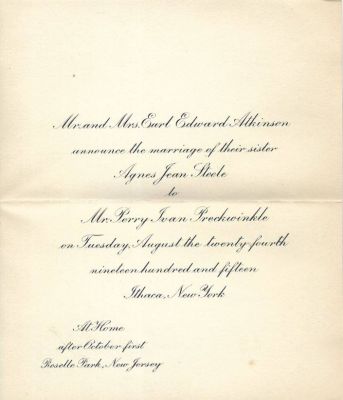 Mr. and Mrs. Earl Edward Atkinson
announce the marriage of their sister
Agnes Jean Steele
to
Mr. Perry Ivan Preckwinkle
on Tuesday, August the twenty-fourth
nineteen hundred and fifteen
Ithaca, New York
At Home
after October first
Roselle Park, New Jersey